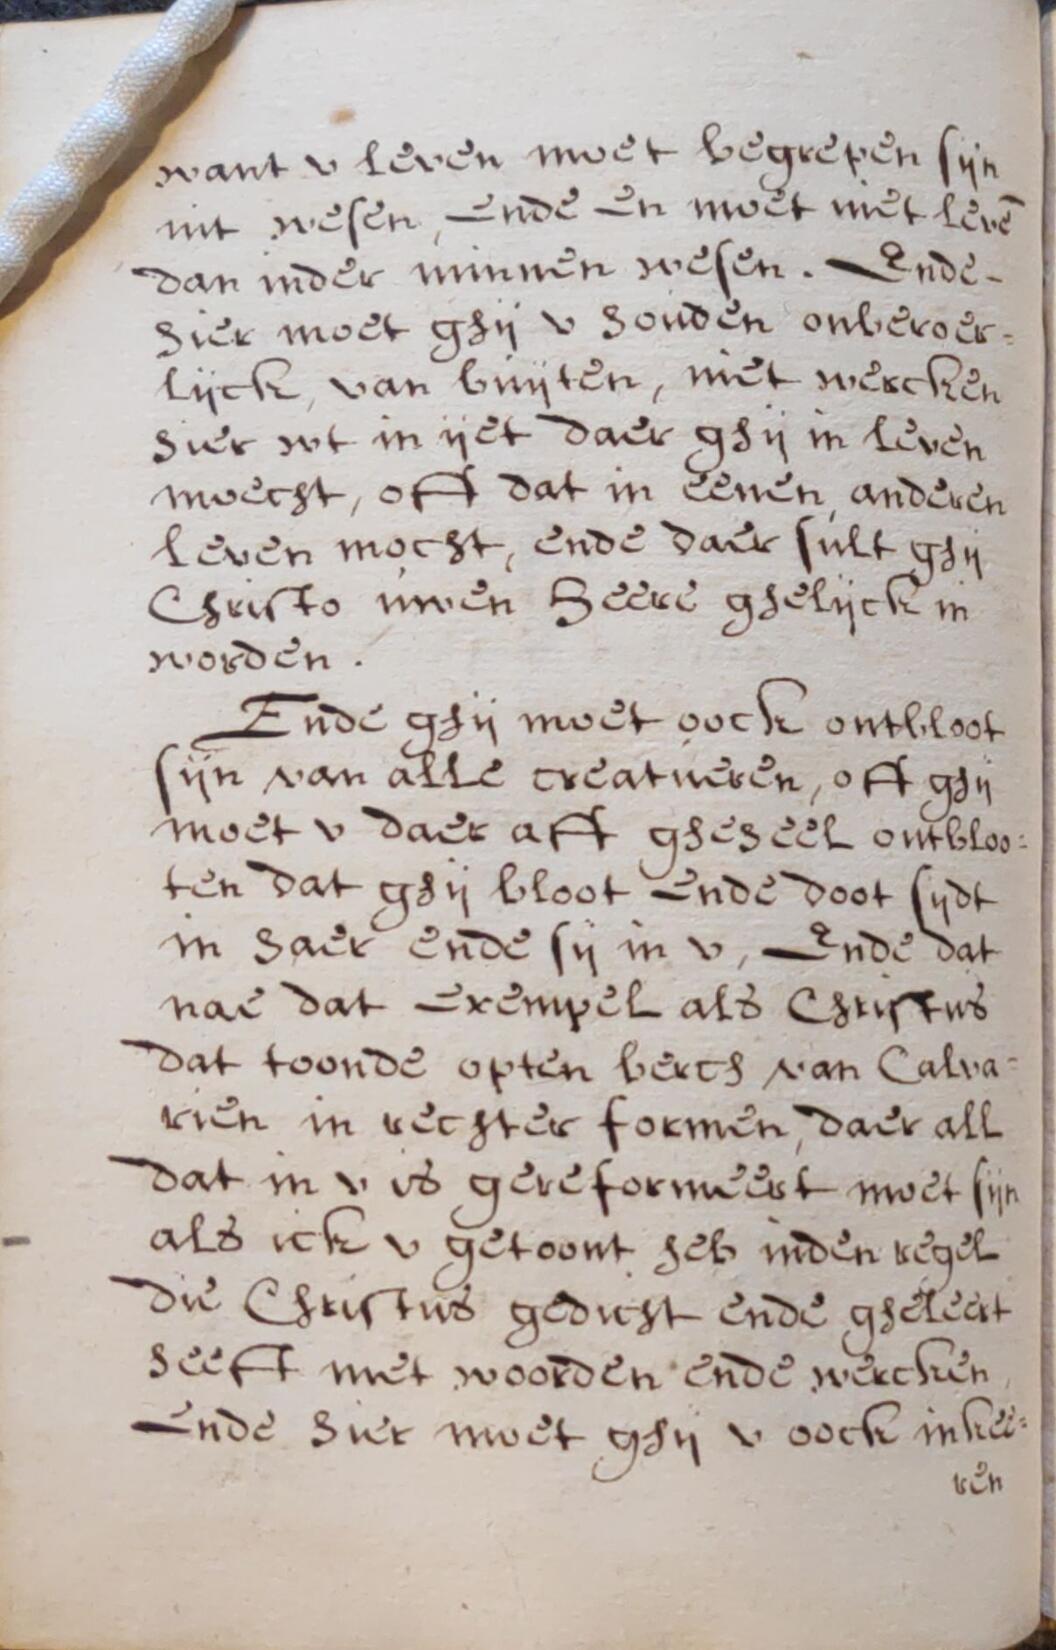 want v leven moet begrepen sijn
int wesen, ende en moet niet levē
dan inder minnen wesen. Ende-
hier moet ghij v houden onberoer=
lijck, van buijten, niet wercken
hier wt in ijet daer ghij in leven
moecht, oft dat in eenen anderen
leven mocht, ende daer sult ghij
Christo uwen Heere ghelijck in
worden.
Ende ghij moet oock ontbloot
sijn van alle creatueren, oft ghij
moet v daer aft gheheel ontbloo=
ten dat ghij bloot ende doot sijdt
in haer ende sij in v, Ende dat
nae dat exempel als Christus
dat toonde opten berch van Calva=
rien in rechter formen, daer all
dat in v is gereformeert moet sijn
als ick v getoont heb inden regel
die Christus gedicht ende gheleert
heeft met woorden ende wercken,
Ende hier moet ghij v oock inkee=
ren